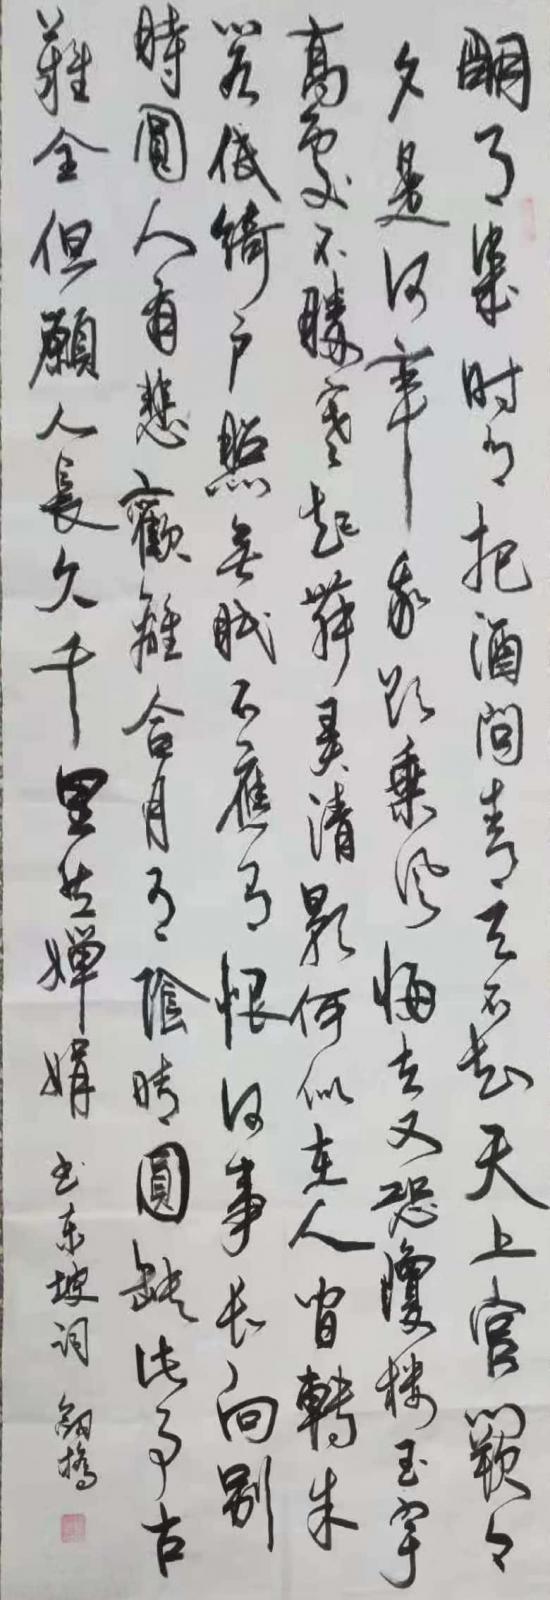 明月幾时有把酒問青天不知天上宫闕今
夕是何年我欲乘风歸去又恐瓊楼玉宇
高處不勝寒起舞弄清影何似在人间轉朱
阁低綺户照無眠不應有恨何事长向别
時圓人有悲歡離合月有陰晴圓缺此事古
難全但願人長久千里共嬋娟
书东坡词